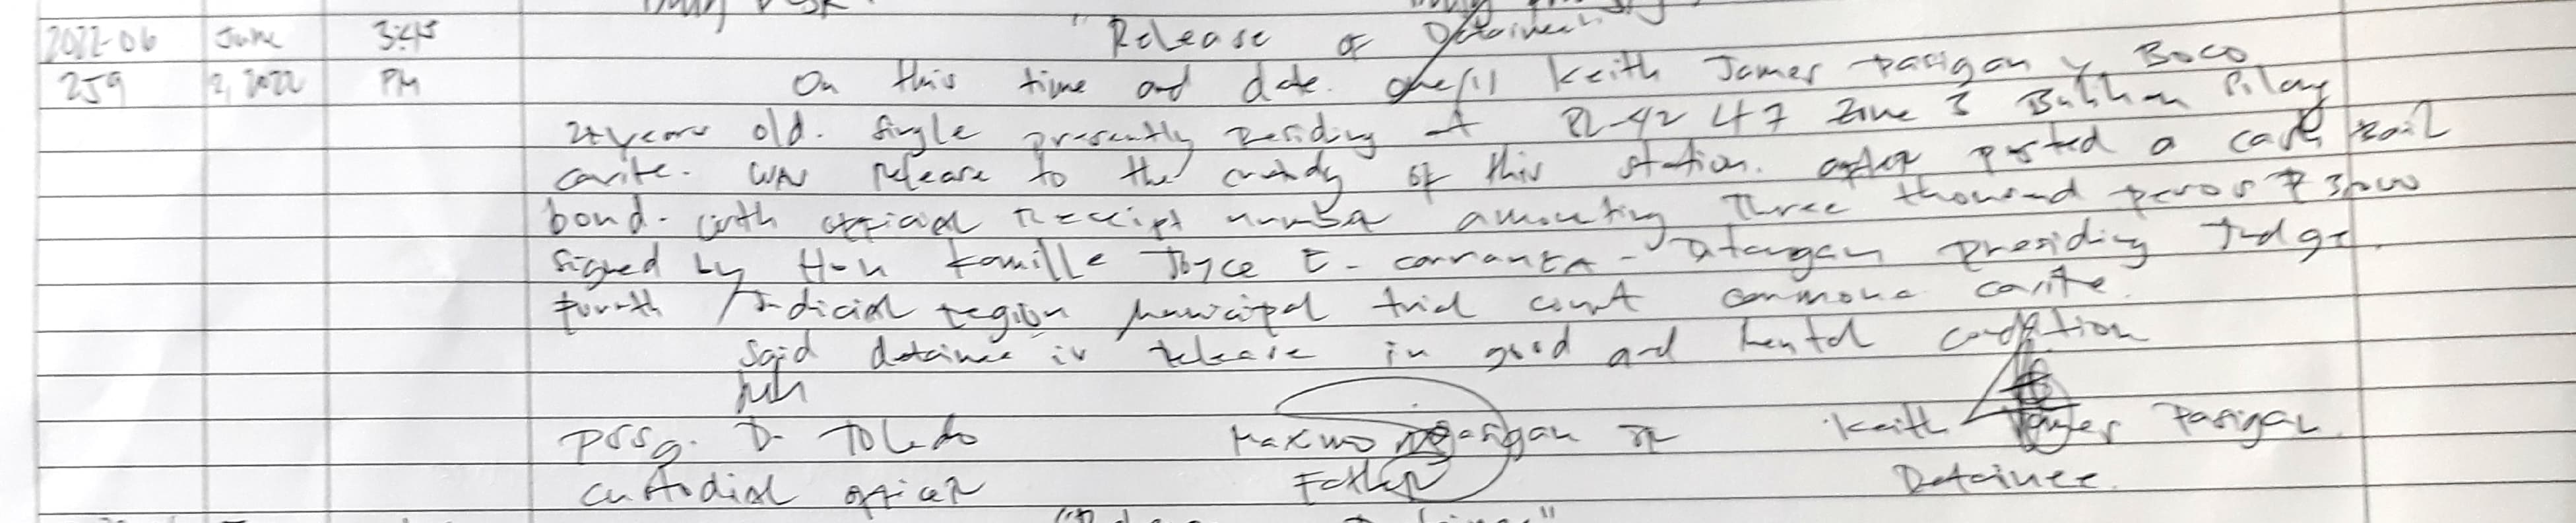 2022-06 June 3:45 "Release of Detainee"
259 2, 2022 PM On this time and date. one(1) Keith James Pasigan y Boco
years old. Single presently residing at 42 L47 Zone 3 Bulihan Silang
cavite. was release to the custody of this station. after posted a cash bail
bond. with official receipt number amounting Three thousand pesos ₱ 3,000
signed by Hon Kamille Joyce E. presiding Judge.
fourth Judicial region Municipal trial court carmona cavite.
Said detainee is release in good and mental condition
PSSg. D. Toledo Maximo Pasigan Jr Keith James Pasigan
custodial officer Father Detainee.